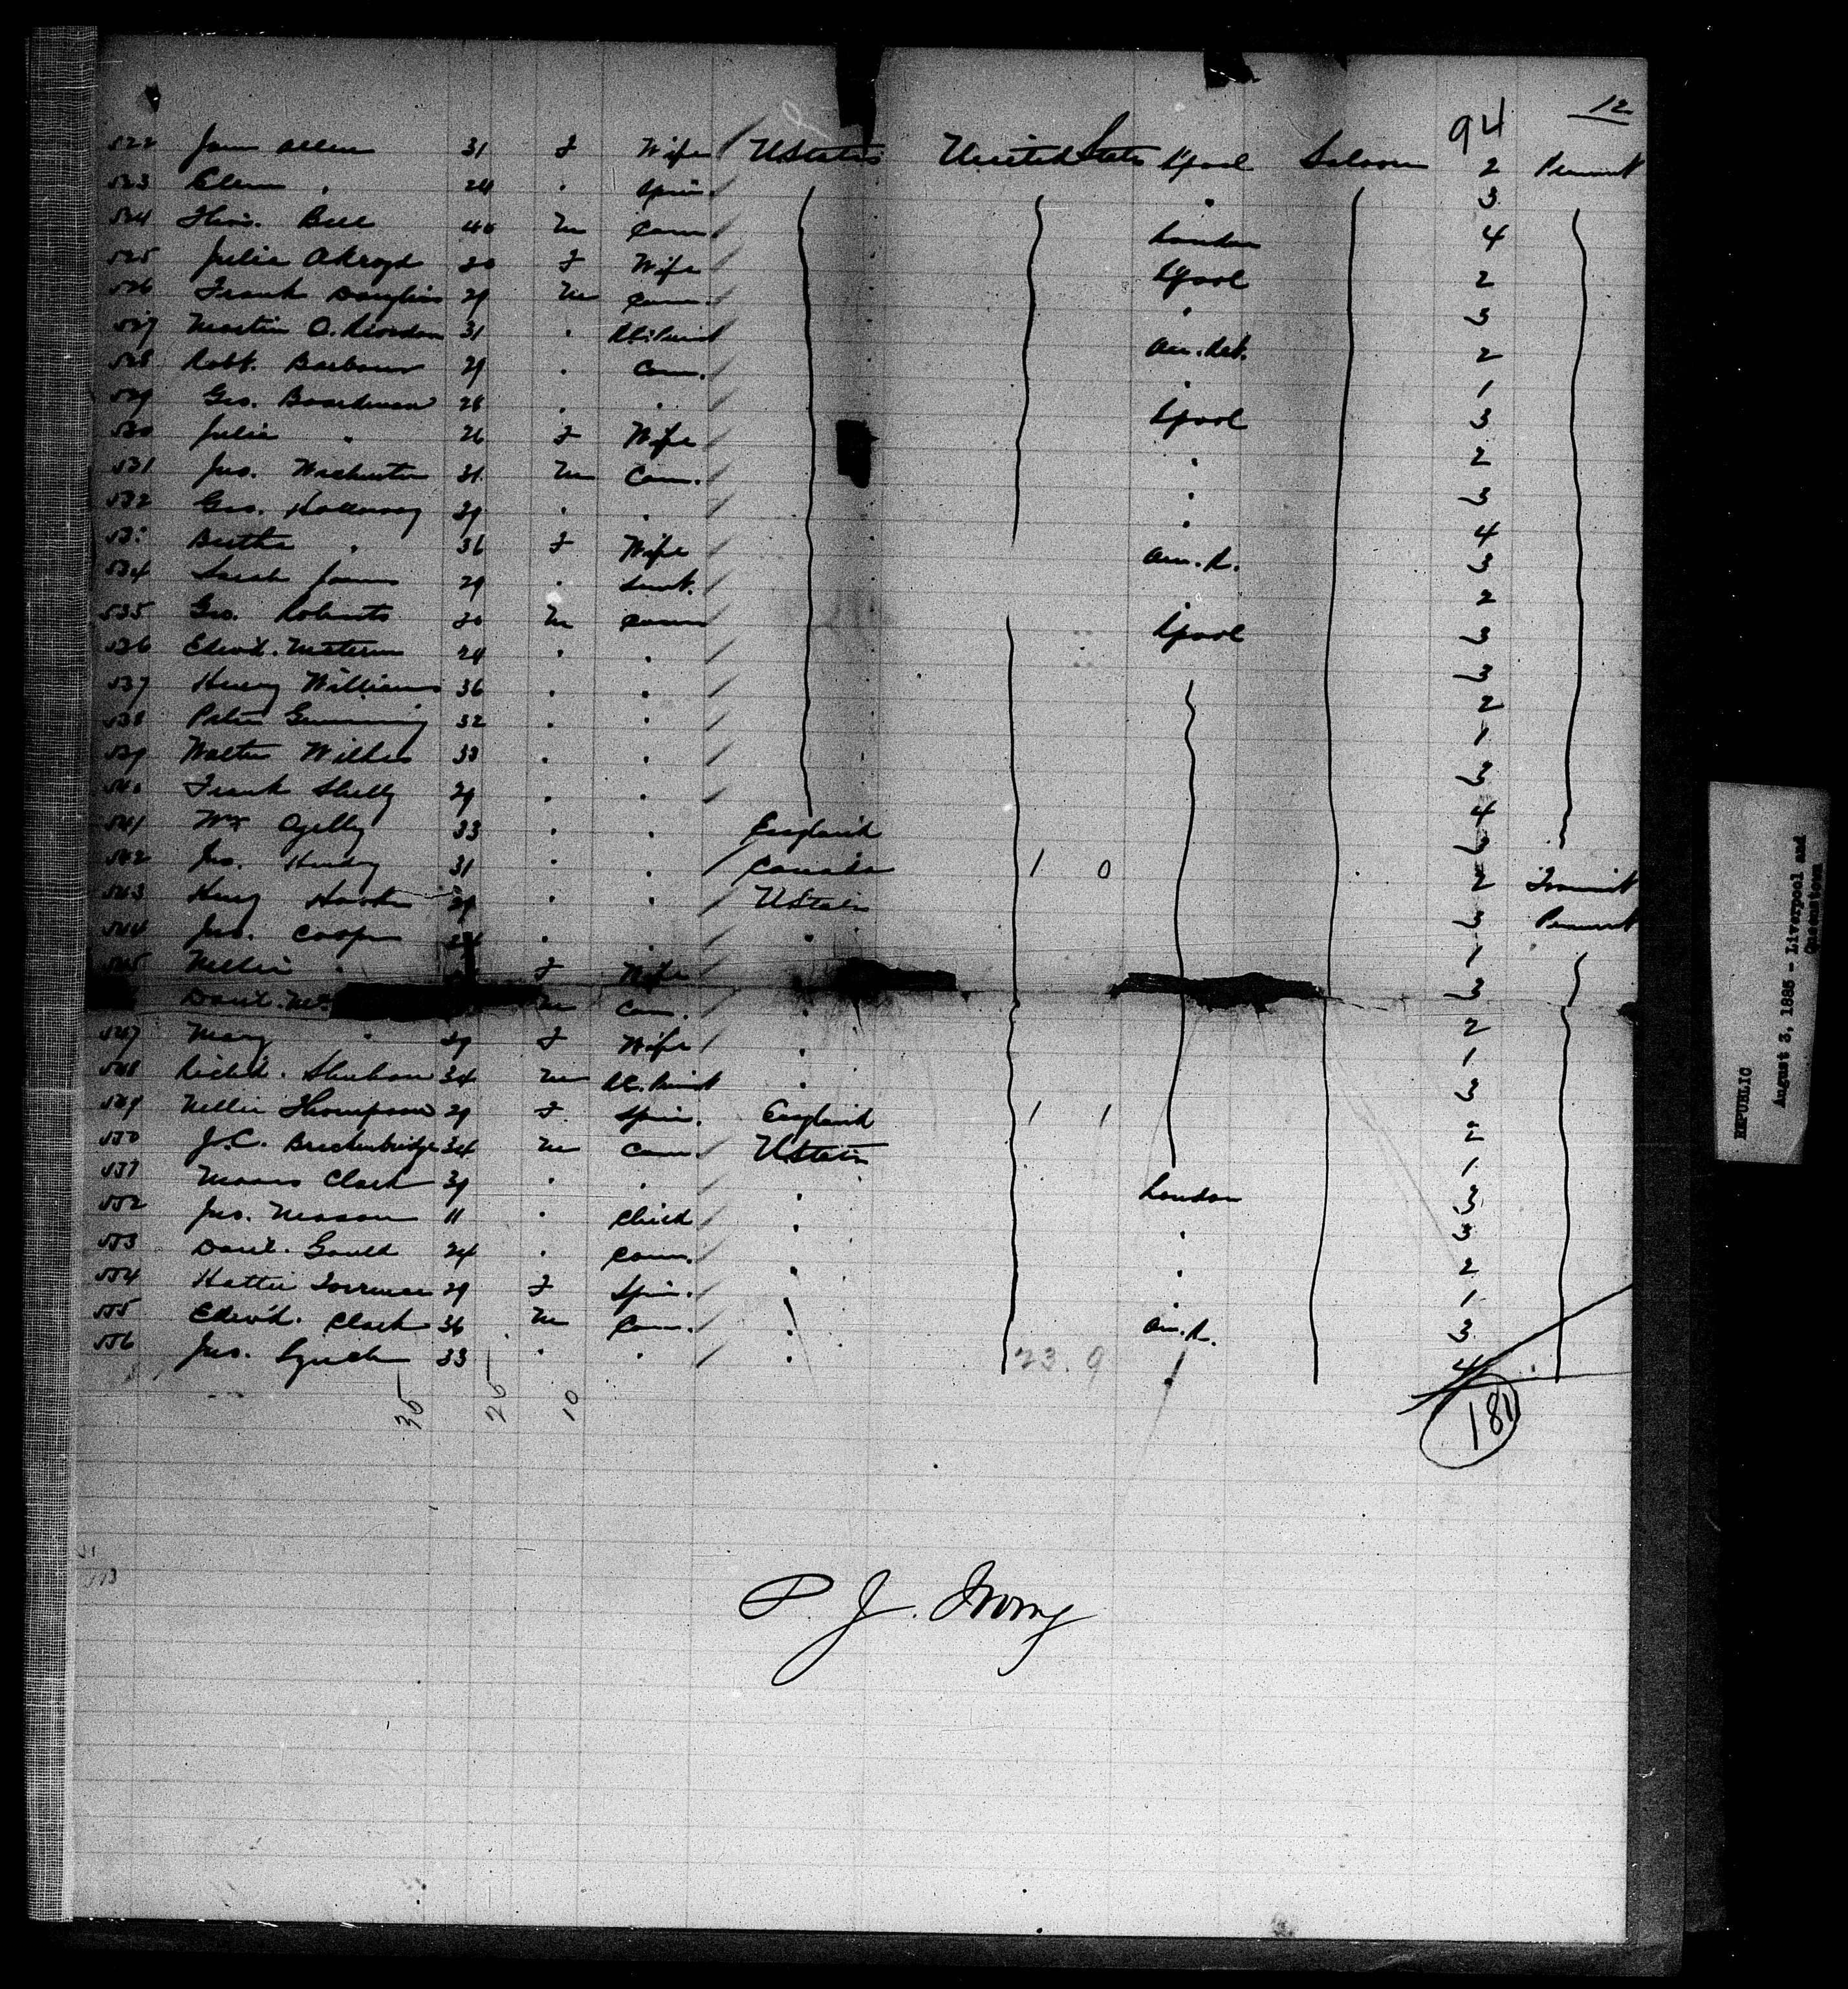 94 12
522 Jam Allen 31 F Wife UStates United States Lpool Saloon 2 Permnt
523 Ellen " 24 " Spin " 3
524 Thos. Bell 40 M Com London 4
525 Julia Akroyd 30 F Wife Lpool 2
526 Frank Douglass 29 M Com " 3
527 Martin O. Riordan 31 " 2
528 Robt. Barbour 29 " Com. " 1
529 Geo. Boardman 28 " " Lpool 3
530 Julia " 26 F Wife " 2
531 Jas. 31 M Com. " 3
532 Geo. Holloway 39 " " " 4
533 Bertha " 36 F Wife 3
534 Sarah Jones 29 " Servt. " 2
535 Geo. Roberts 30 M Com Lpool 3
536 Edwd. 24 " " 3
537 Henry Williams 36 " " 2
538 Peter 32 " " 1
539 Walter Wilkes 33 " " 3
540 Frank Shelly 29 " " 4
541 Wm Ogilby 33 " " England 3
542 Jas. 31 " " Canada 1 0 2 Transit
543 29 " " UStates 3 Permnt
544 Jas. Cooper " " " 1
545 Nellie " F Wife 3
Danl. Mc M Com. " 2
547 Mary " 29 F Wife " 1
548 Richd. 34 M " 3
549 Nellie Thompson 29 F Spin. England 1 1 2
550 J.C. Breckenbridge 34 M Com UStates 1
551 Clark 39 " " " London 3
552 Jas. Mason 11 " Child " " 3
553 Danl. Gould 24 " Com. " " 2
554 Hattie Torrence 29 F Spin. " 1
555 Edwd. Clark 36 M Com. " 3
556 Jas. Lynch 33 " " " 23. 9 " 4
35 25 10
181
REPUBLIC
August 3, 1885 - Liverpool and
Queenstown
P. J. Irving